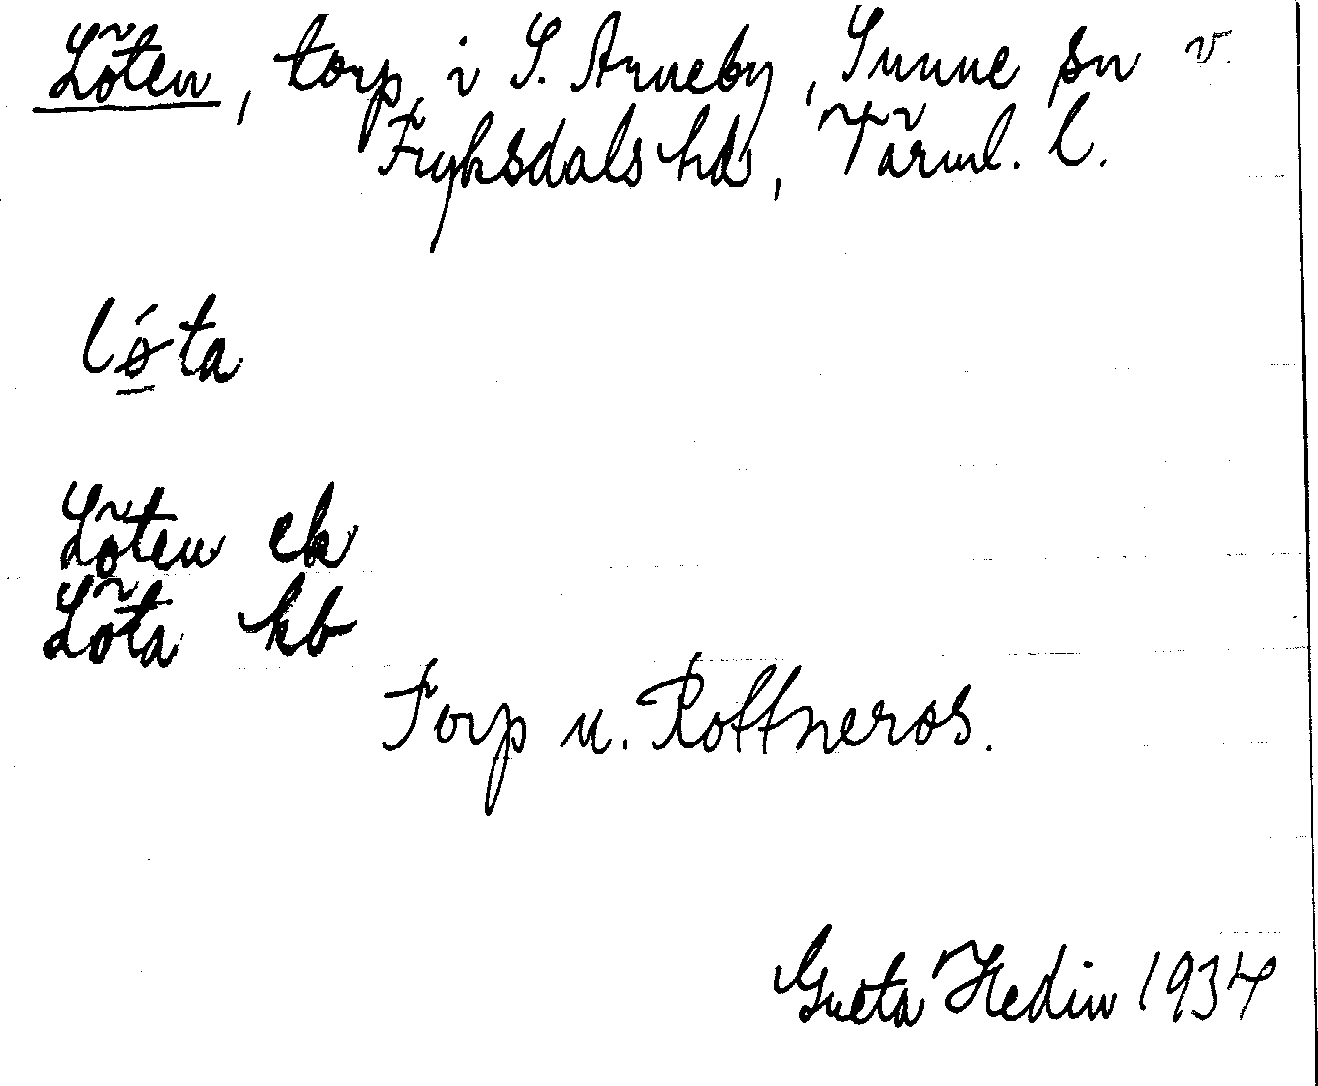 Löten, torp i S. Arneby, Sunne sn v.
Fryksdals hd, Värml. l.
lǿ̲ta
Löten ek
Löta kb
Torp u. Rottneros.
Greta Hedin 1934